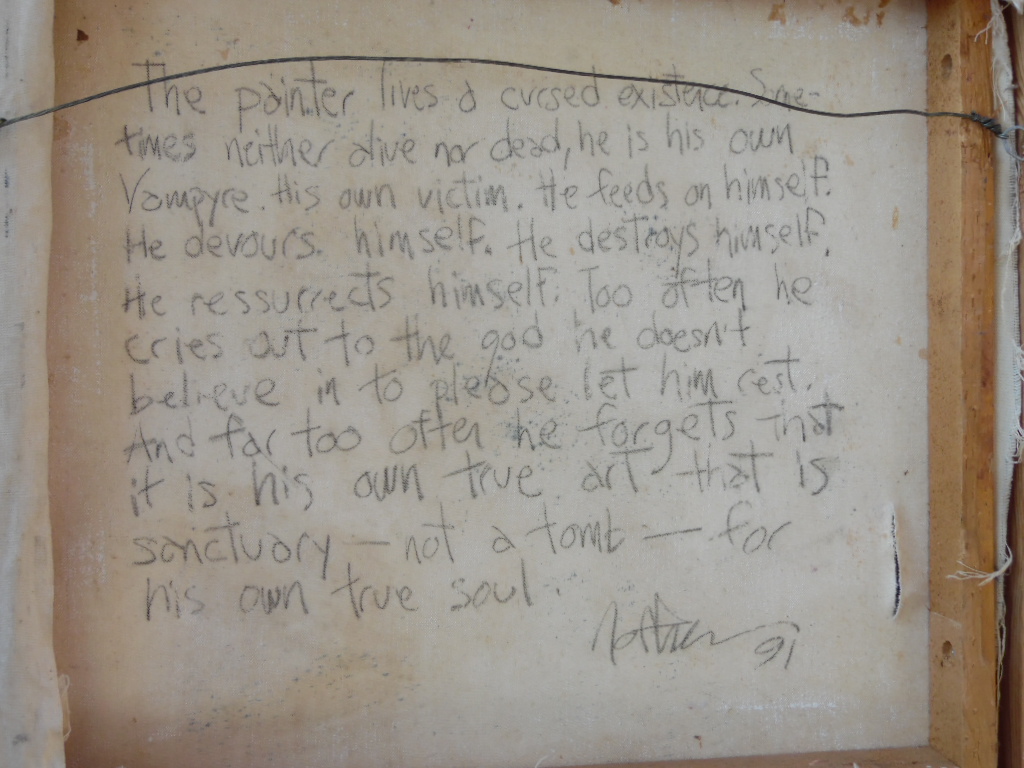 The painter lives a cursed existence. Some-
times neither alive nor dead, he is his own
Vampyre. His own victim. He feeds on himself.
He devours. himself. He destroys himself.
He ressurrects himself. Too often he
cries out to the god he doesn't
believe in to please let him rest.
And far too often he forgets that
it is his own true art that is
sanctuary — not a tomb — for
his own true soul.
91